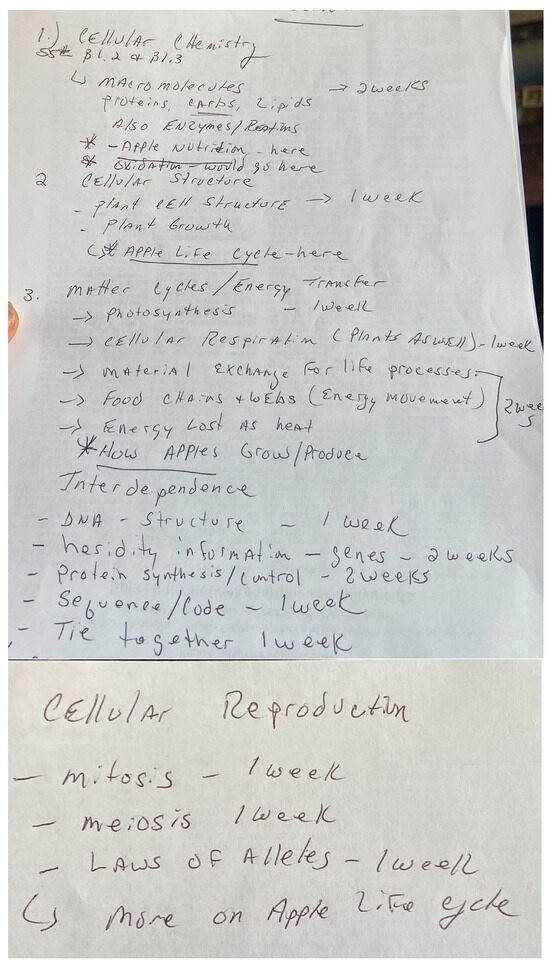 1.) Cellular Chemistry
B1.2 & B1.3
↳ Macromolecules → 2weeks
Proteins, Carbs, Lipids
Also Enzymes/
* - Apple Nutrition - here
* Oxidation - would go here
2 Cellular Structure
- Plant Cell Structure → 1 week
- Plant Growth
↳* Apple Life Cycle - here
3. Matter Cycles/Energy Transfer
→ Photosynthesis - 1week
→ Cellular Respiration (Plants As well) - 1week
→ Material Exchange For life processes -
→ Food Chains + Webs (Energy movement)
2weeks
→ Energy Lost As heat
* How Apples Grow/Produce
Interdependence
- DNA - Structure - 1 week
- heridity information - genes - 2 weeks
- Protein Synthesis/Control - 2weeks
- Sequence/Code - 1week
- Tie together 1week
Cellular Reproduction
- mitosis - 1week
- meiosis 1week
- Laws of Alleles - 1week
↳ more on Apple Life cycle